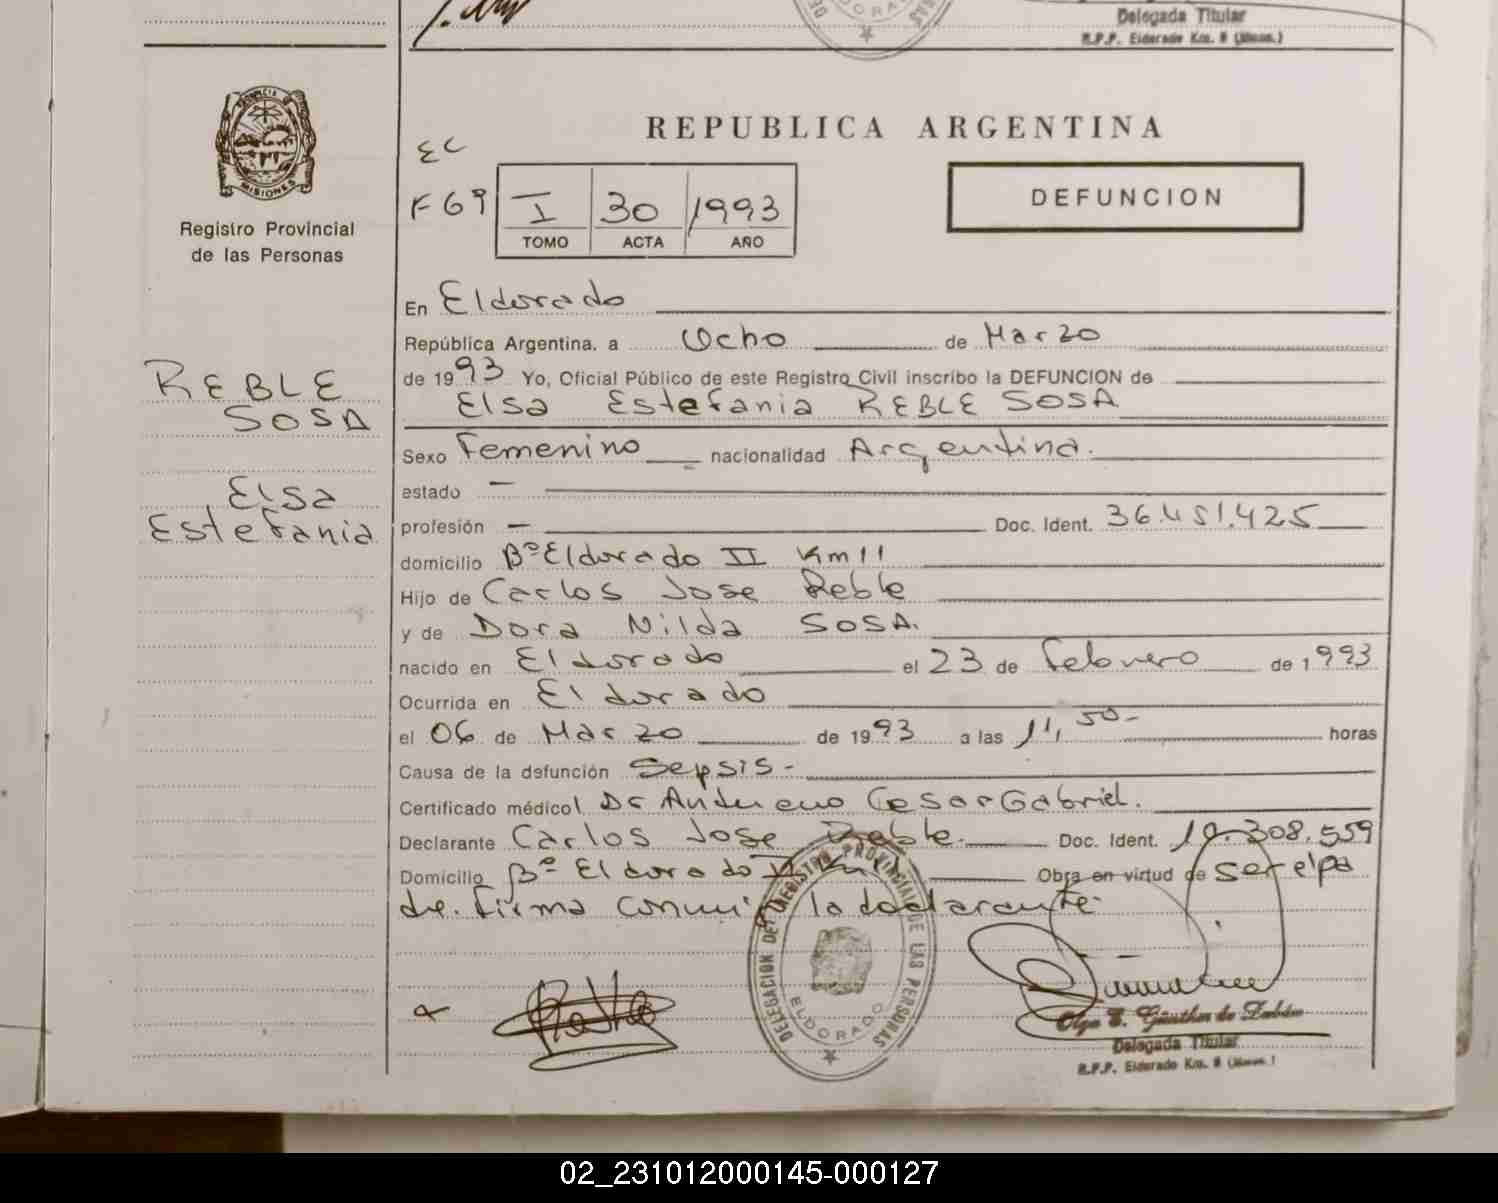 Delegada Titular
R.P.P. Eldorado Km. 8 (Misnes.)
PROVINCIA DE
MISIONES
Registro Provincial
de las Personas
REBLE
SOSA
Elsa
Estefania
REPUBLICA ARGENTINA
EC
F 69
I 30 1993
TOMO ACTA AÑO
DEFUNCION
En Eldorado
República Argentina, a Ocho de Marzo
de 1993 Yo, Oficial Público de este Registro Civil inscribo la DEFUNCION de
Elsa Estefania REBLE SOSA
Sexo Femenino nacionalidad Argentina.
estado —
profesión — Doc. Ident. 36.451.425
domicilio Bº Eldorado II Km 11
Hijo de Carlos Jose Reble
y de Dora Nilda SOSA.
nacido en Eldorado el 23 de Febrero de 1993
Ocurrida en Eldorado
el 06 de Marzo de 1993 a las 11,50- horas
Causa de la defunción Sepsis-
Certificado médico Dr Cesar Gabriel.
Declarante Carlos Jose Reble. Doc. Ident. 308.559
Domicilio Bº Eldorado II Obra en virtud de ser el pa
dre. firma conmi
DELEGACION DEL REGISTRO PROVINCIAL DE LAS PERSONAS
ELDORADO
Olga E. Günther de Zubán
Delegada Titular
R.P.P. Eldorado Km. 8 (Misnes.)
02_231012000145-000127